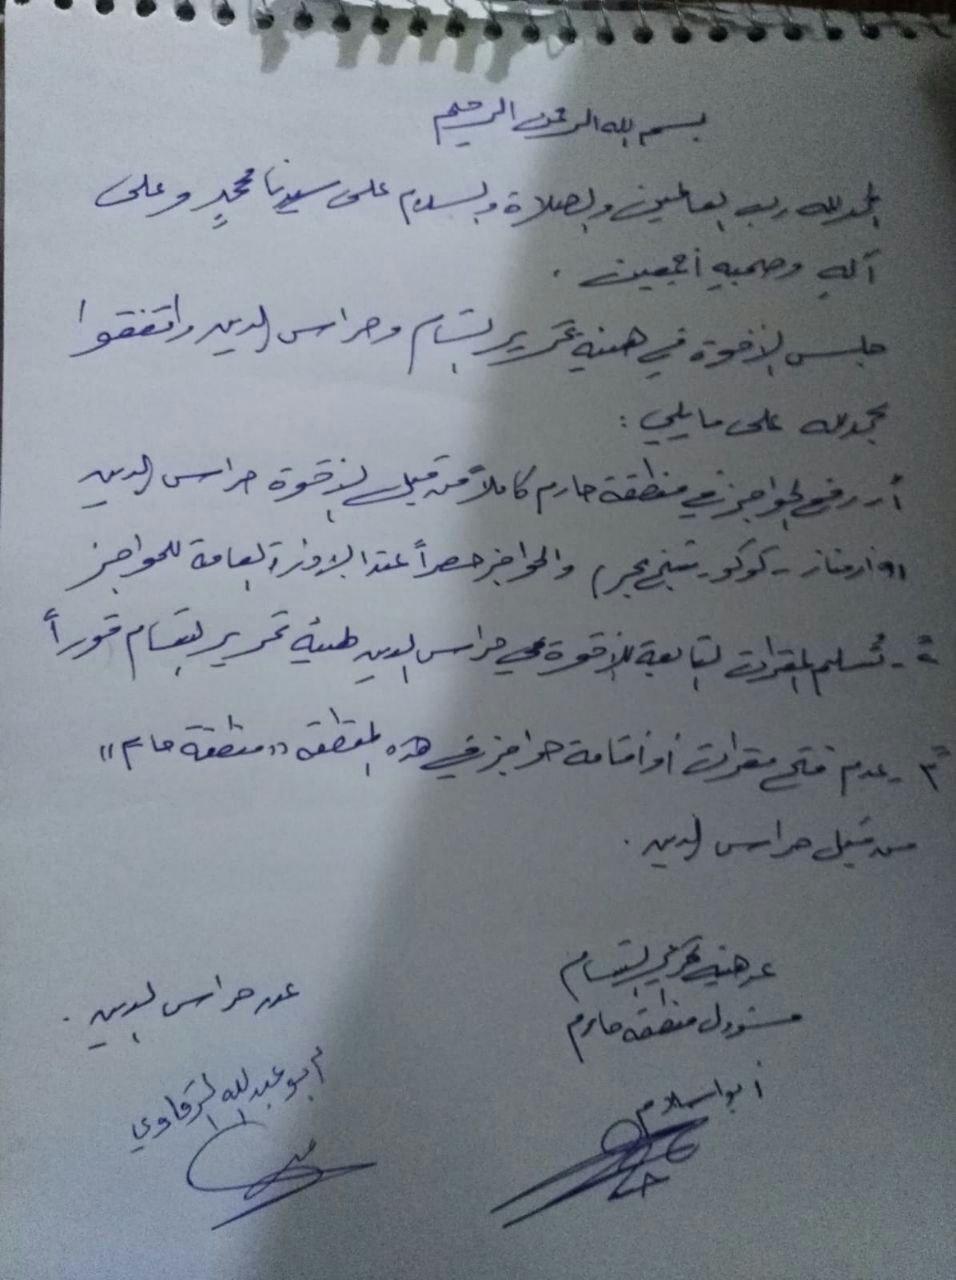 بسم الله الرحمن الرحيم
الحمد لله رب العالمين والصلاة والسلام على سيدنا محمدٍ وعلى
آلهِ وصحبهِ أجمعين .
جلس الإخوة في هيئة تحرير الشام وحراس الدين واتفقوا
بحمد لله على ما يلي :
أ- رفع الحواجز في منطقة حارم كاملاً من قبل الإخوة حراس الدين
ارمناز - كوكو - شيخ بحر والحواجز حصراً عند الإدارة العامة للحواجز
٢ً - تُسلم المقرات التابعة للإخوة في حراس الدين لهيئة تحرير الشام فوراً
٣ً - عدم فتح مقرات أو اقامة حواجز في هذه المنطقة "منطقة حارم"
من قبل حراس الدين .
عن هيئة تحرير الشام
مسؤول منطقة حارم
أبو اسلام
عن حراس الدين .
أبو عبدالله الرقاوي